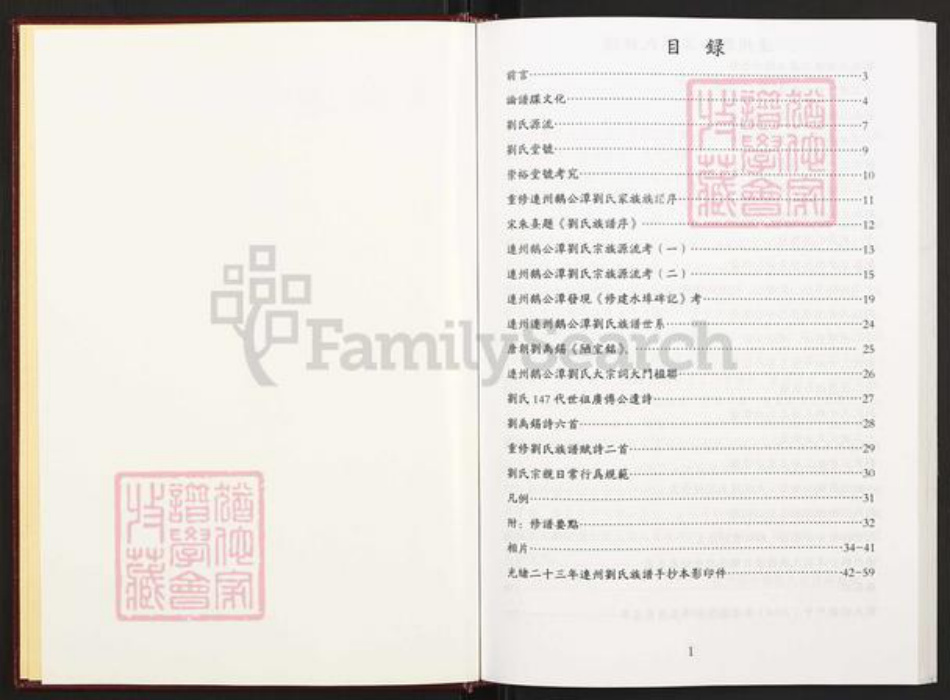 目 錄
前言 3
論譜牒文化 4
劉氏源流 7
劉氏堂號 9
崇裕堂號考究 10
重修連州鵝公潭劉氏家族族譜序 11
宋朱熹題《劉氏族譜序》 12
連州鵝公潭劉氏宗族源流考(一) 13
連州鵝公潭劉氏宗族源流考(二) 15
連州鵝公潭發現《修建水埠碑記》考 19
連州鵝公潭劉氏族譜世系 24
唐朝劉禹錫《陋室銘》 25
連州鵝公潭劉氏大宗祠大門楹聯 26
劉氏 147 代世祖廣傳公遺詩 27
劉禹錫詩六首 28
重修劉氏族譜賦詩二首 29
劉氏宗親日常行爲規範 30
凡例 31
附：修譜要點 32
相片 34-41
光緒二十三年連州劉氏族譜手抄本影印件 42-59
1
FamilySearch
猶他家
譜學會
收藏
猶他家
譜學會
收藏